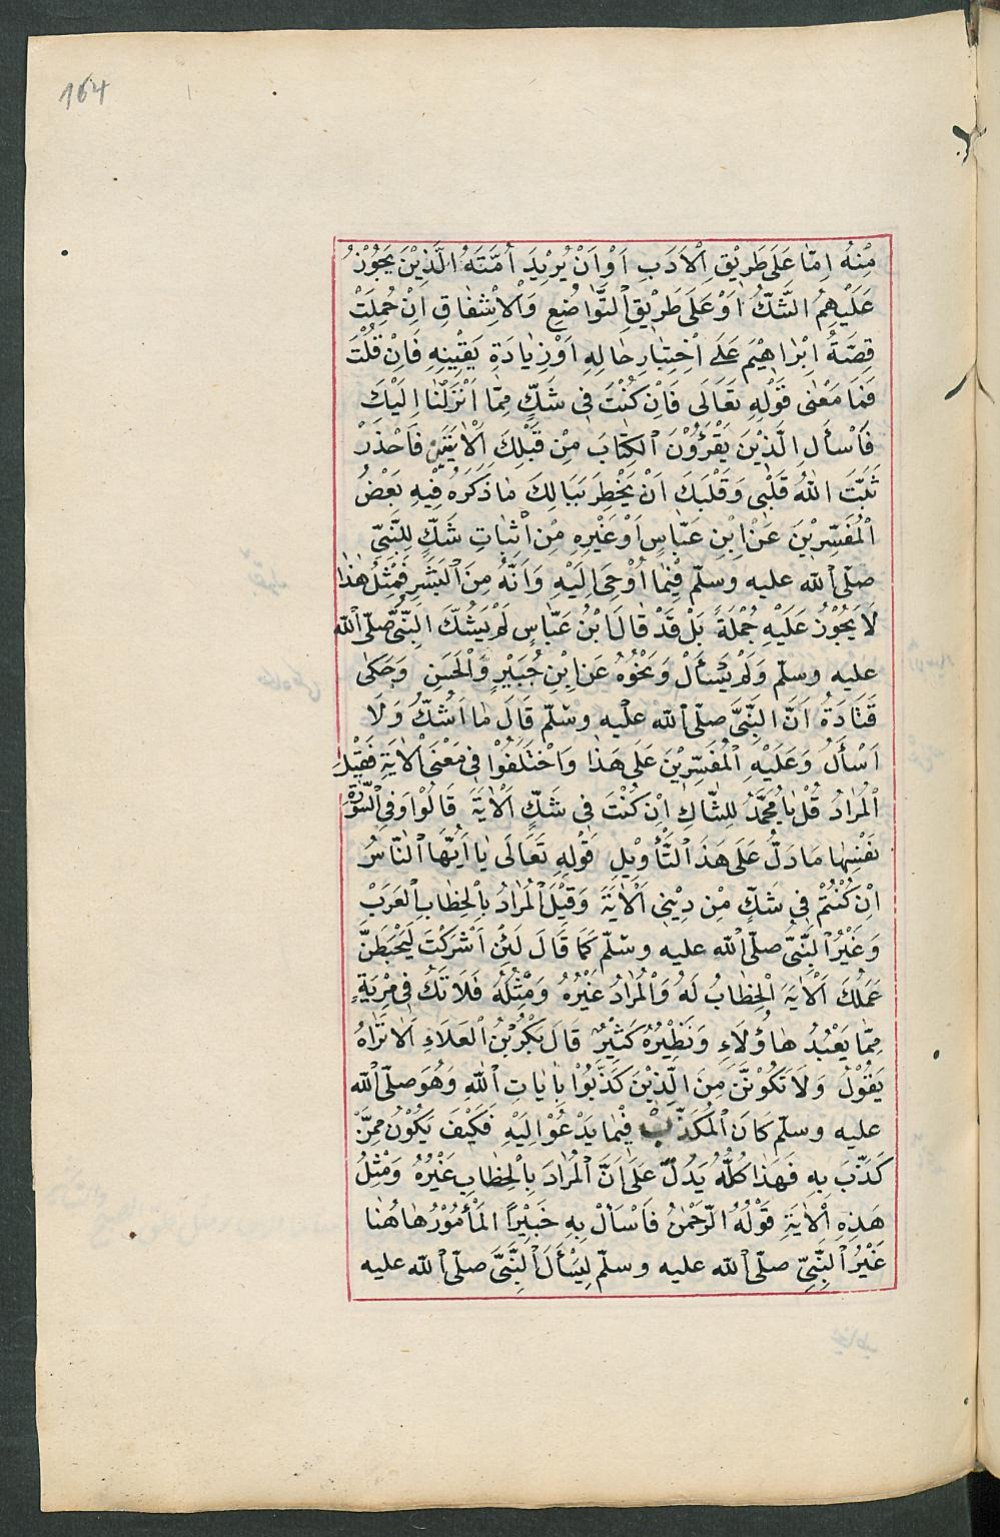 164
مِنْهُ اِمَّا عَلَى طَرِيْقِ الْاَدَبِ اَوْ اَنْ يُرِيْدَ اُمَّتَهُ الَّذِيْنَ يَجُوْزُ
عَلَيْهِمُ الشَّكُّ اَوْ عَلَى طَرِيْقِ التَّوَاضُعِ وَالْاِشْفَاقِ اِنْ حُمِلَتْ
قِصَّةُ اِبْرَاهِيْمَ عَلَى اخْتِبَارِ حَالِهِ اَوْ زِيَادَةِ يَقِيْنِهِ فَاِنْ قُلْتَ
فَمَا مَعْنٰى قَوْلِهِ تَعَالَى فَاِنْ كُنْتَ فِى شَكٍّ مِمَّا اَنْزَلْنَا اِلَيْكَ
فَاسْأَلِ الَّذِيْنَ يَقْرَؤُنَ الْكِتَابَ مِنْ قَبْلِكَ الْاٰيَتَيْنِ فَاحْذَرْ
ثَبَّتَ اللهُ قَلْبِى وَقَلْبَكَ اَنْ يَخْطِرَ بِبَالِكَ مَا ذَكَرَهُ فِيْهِ بَعْضُ
الْمُفَسِّرِيْنَ عَنِ ابْنِ عَبَّاسٍ اَوْ غَيْرِهِ مِنْ اِثْبَاتِ شَكٍّ لِلنَّبِىِّ
صلّى الله عليه وسلّم فِيْمَا اُوْحِىَ اِلَيْهِ وَاَنَّهُ مِنَ الْبَشَرِ فَمِثْلُ هٰذَا
لَا يَجُوْزُ عَلَيْهِ جُمْلَةً بَلْ قَدْ قَالَ ابْنُ عَبَّاسٍ لَمْ يَشُكَّ النَّبِىُّ صلّى الله
عليه وسلّم وَلَمْ يَسْأَلْ وَنَحْوُهُ عَنِ ابْنِ جُبَيْرٍ وَالْحَسَنِ وَحَكٰى
قَتَادَةُ اَنَّ النَّبِىَّ صلّى الله عليه وسلّم قَالَ مَا اَشُكُّ وَلَا
اَسْأَلُ وَعَلَيْهِ الْمُفَسِّرِيْنَ عَلَى هٰذَا وَاخْتَلَفُوْا فِى مَعْنَى الْاٰيَةِ فَقِيْلَ
الْمُرَادُ قُلْ يَا مُحَمَّدُ لِلشَّاكِ اِنْ كُنْتَ فِى شَكٍّ الْاٰيَةَ قَالُوْا وَفِى السُّوْرَةِ
نَفْسِهَا مَا دَلَّ عَلَى هَذَ التَّأْوِيْلِ قَوْلِهِ تَعَالَى يَا اَيُّهَا النَّاسُ
اِنْ كُنْتُمْ فِى شَكٍّ مِنْ دِيْنِى الْاٰيَةَ وَقِيْلَ الْمُرَادُ بِالْخِطَابِ الْعَرَبْ
وَغَيْرُ النَّبِىِّ صلّى الله عليه وسلّم كَمَا قَالَ لَئِنْ اَشْرَكْتَ لَيَحْبَطَنَّ
عَمَلُكَ الْاٰيَةَ الْخِطَابُ لَهُ وَالْمُرَادُ غَيْرُهُ وَمِثْلُهُ فَلَا تَكُ فِى مِرْيَةٍ
مِمَّا يَعْبُدُ هَاؤُلَاءِ وَنَظِيْرُهُ كَثِيْرٌ قَالَ بَكْرُ بْنُ الْعَلَاءِ اَلَا تَرَاهُ
يَقُوْلُ وَلَا تَكُوْنَنَّ مِنَ الَّذِيْنَ كَذَّبُوْا بِاٰيَاتِ اللهِ وَهُوَ صلّى الله
عليه وسلّم كَانَ الْمُكَذَّبَ فِيْمَا يَدْعُوْ اِلَيْهِ فَكَيْفَ يَكُوْنُ مِمَّنْ
كَذَّبَ بِهِ فَهٰذَا كُلُّهُ يَدُلُّ عَلَى اَنَّ الْمُرَادَ بِالْخِطَابِ غَيْرُهُ وَمِثْلُ
هَذِهِ الْاٰيَةِ قَوْلُهُ الرَّحْمٰنُ فَاسْأَلْ بِهِ خَبِيْرًا الْمَأْمُوْرُ هَاهُنَا
غَيْرُ النَّبِىِّ صلّى الله عليه وسلّم لِيَسْأَلَ النَّبِىَّ صلّى الله عليه